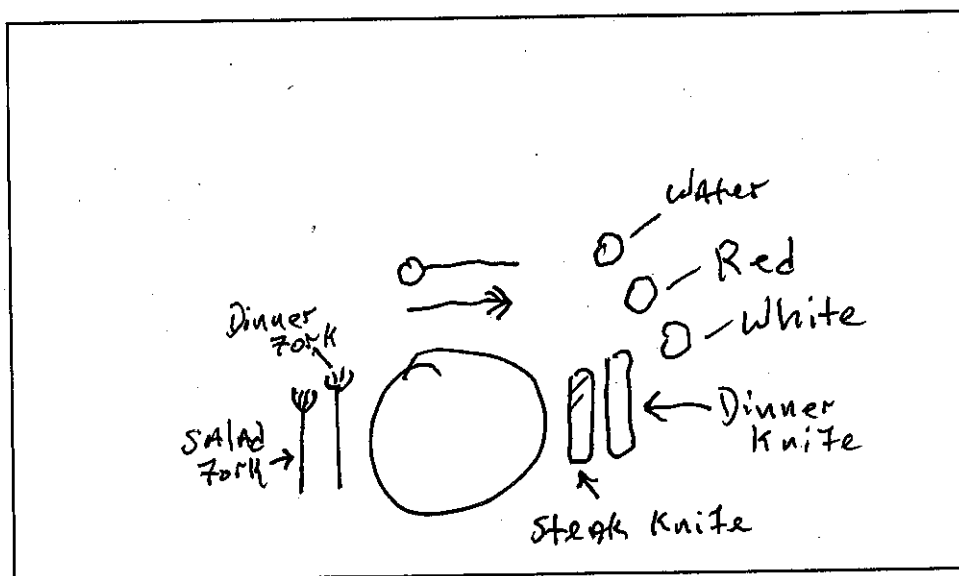 Water
Red
White
Dinner
Fork
Salad
Fork
Dinner
Knife
Steak Knife